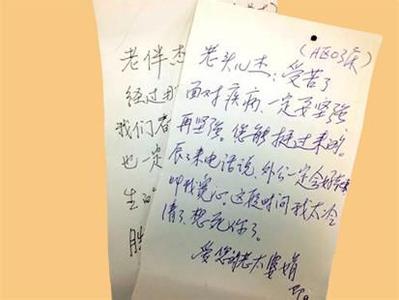 老伴杰
经过
我们
也一定
生
胜
(A区03床)
老头儿杰:受苦了
面对疾病一定要坚强
再坚强。您能挺过来的。
辰辰来电话说,外公一定会好起来
叫我宽心,这段时间我太冷
清了,想死你了。
爱您的老太婆娟